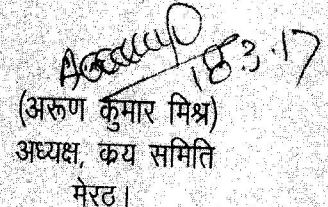 18.3.17
(अरूण कुमार मिश्र)
अध्यक्ष, कय समिति
मेरठ।